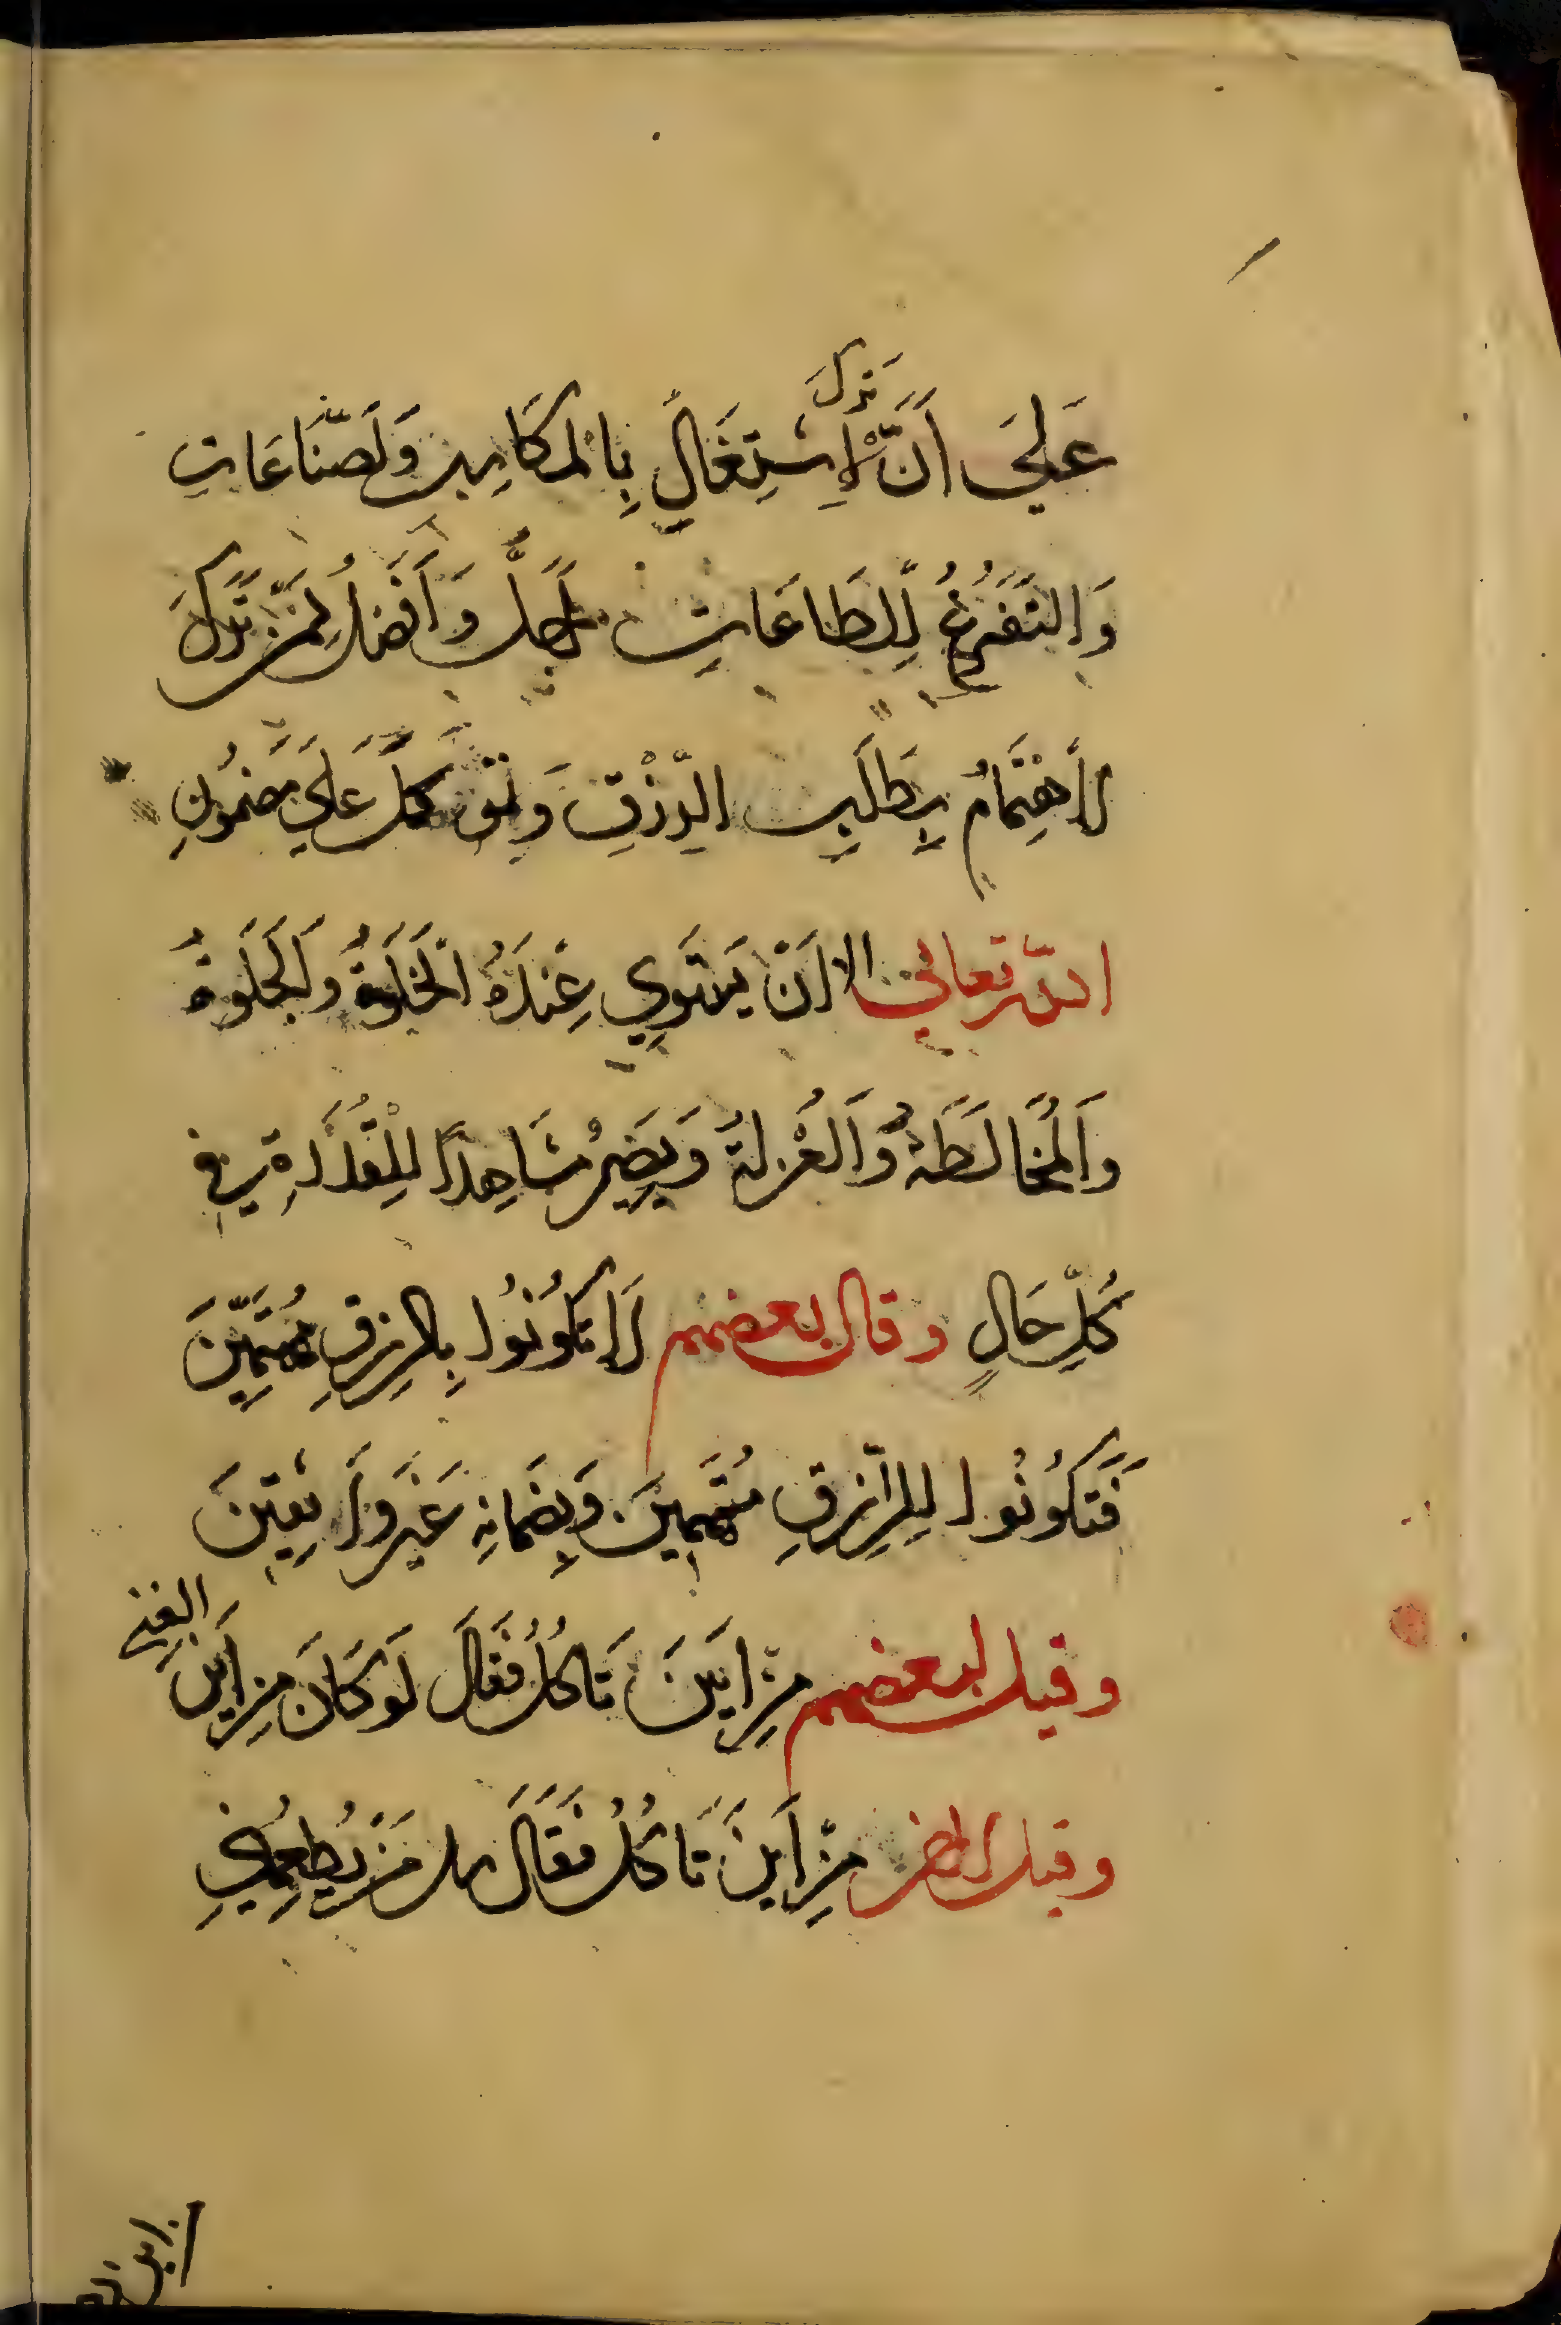 عَلَى أَنَّ تَرْكَ الْاِشْتِغَالِ بِالْمَكَاسِبِ وَلصِّنَاعَاتِ
وَالتَّفَرُّغُ لِلطَّاعَاتِ أَجَلُّ وَأَفْضَلُ لِمَنْ تَرَكَ
الْاِهْتِمَامَ بِطَلَبِ الرِّزْقِ وَتَوَكَّلَ عَلَى مَضْمُونِ
اللّٰه تعالى الا اَنْ يَسْتَوِي عِنْدَهُ الْخَلْوَةُ وَالْجَلْوَةُ
وَالْمُخَالَطَةُ وَالْعُزْلَةُ وَيَصِيْرُ مُشَاهِدًا لِلْقُدْرَةِ فِي
كُلِّ حَالٍ وقال بعضهم لَا تَكُونُوا بِالرِّزْقِ مُهْتَمِّيْنَ
فَتَكُونُوا لِلرَّازِقِ مُتَّهِمِيْنَ وَبِضَمَانِهِ غَيْرَ وَاثِقِيْنَ
وقيل لبعضهم مِنْ اَيْنَ تَاكُلُ فَقَالَ لَوْ كَانَ مِنْ اَيْنَ لفني
وقيل لاخر مِنْ اَيْنَ تَاكُلُ فَقَالَ سل مَنْ يُطْعِمُنِي